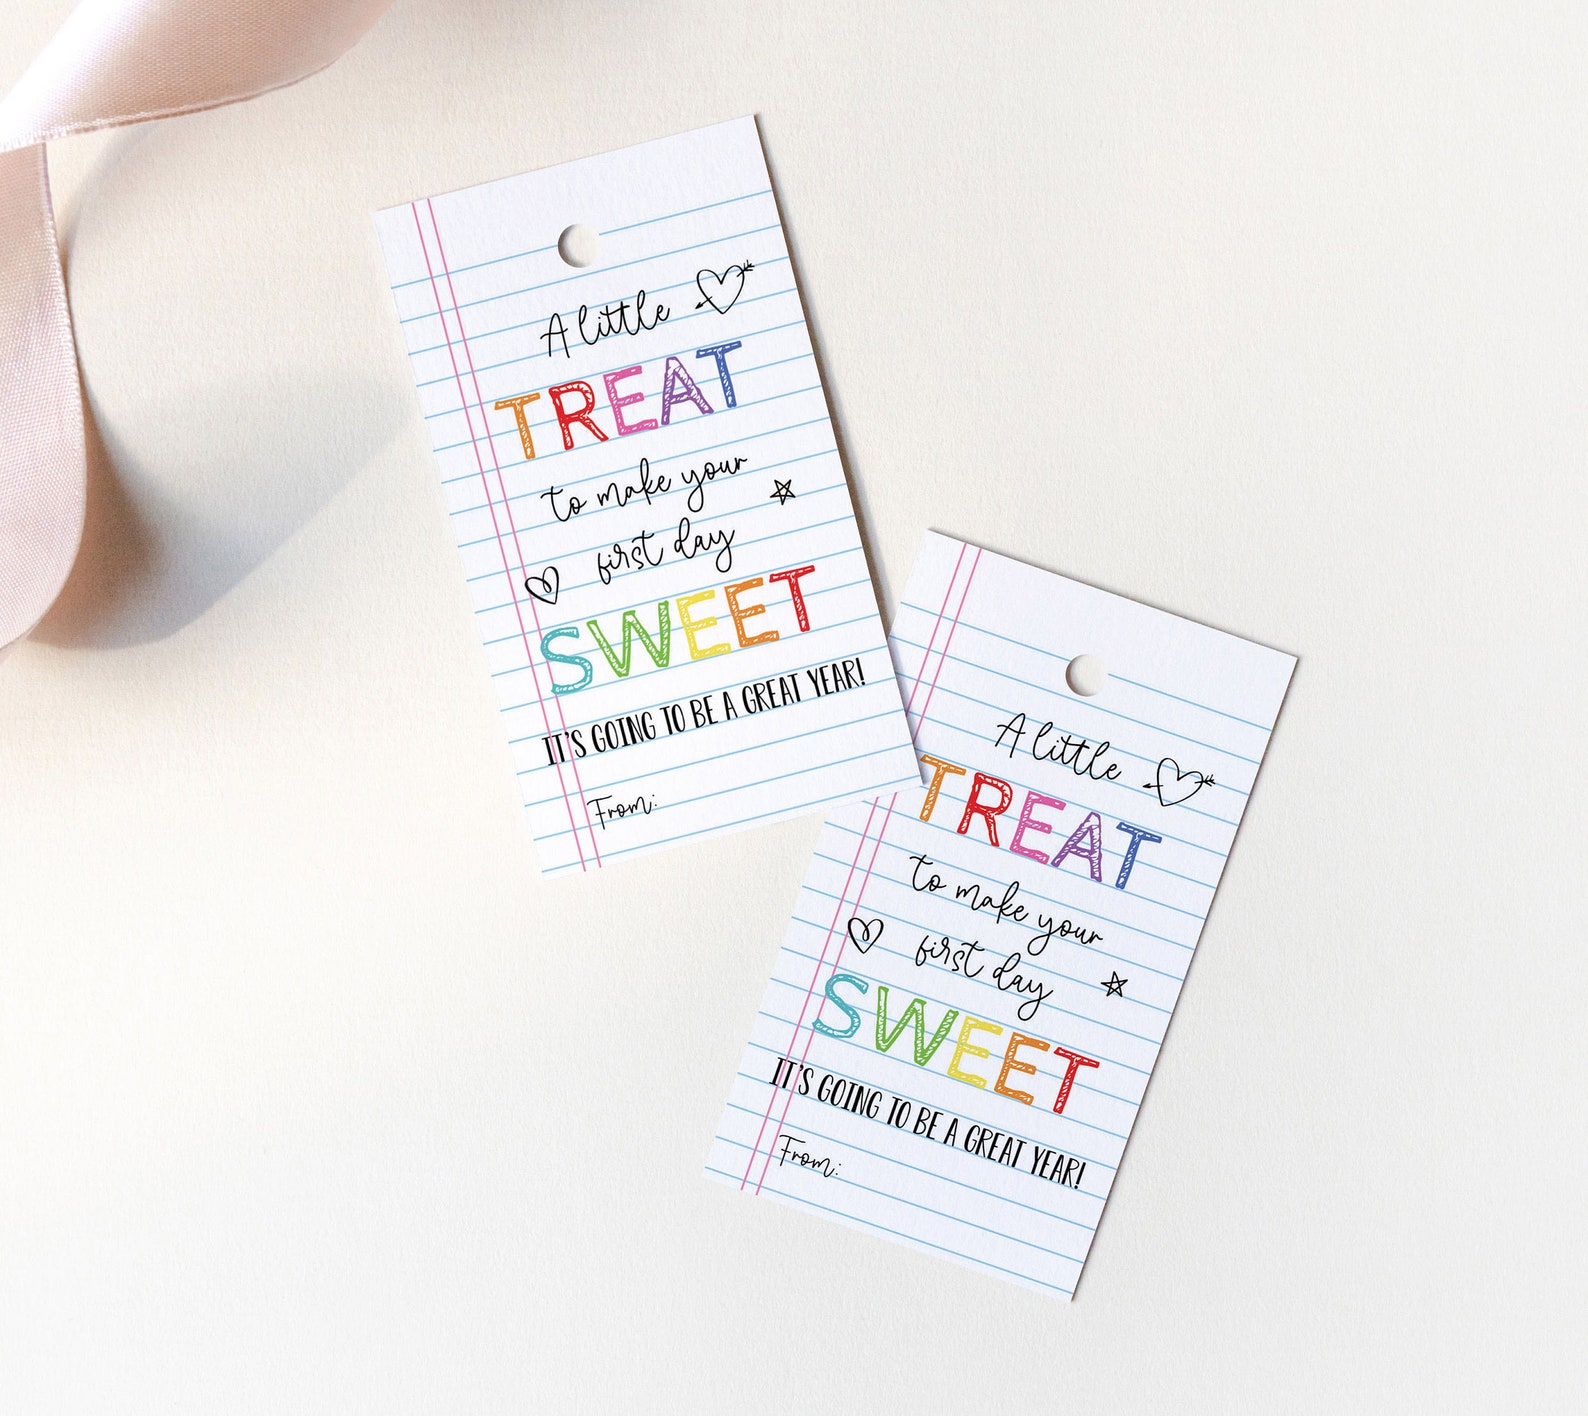 A little
TREAT
to make your
first day
SWEET
IT'S GOING TO BE A GREAT YEAR!
From:
A little
TREAT
to make your
first day
SWEET
IT'S GOING TO BE A GREAT YEAR!
From: